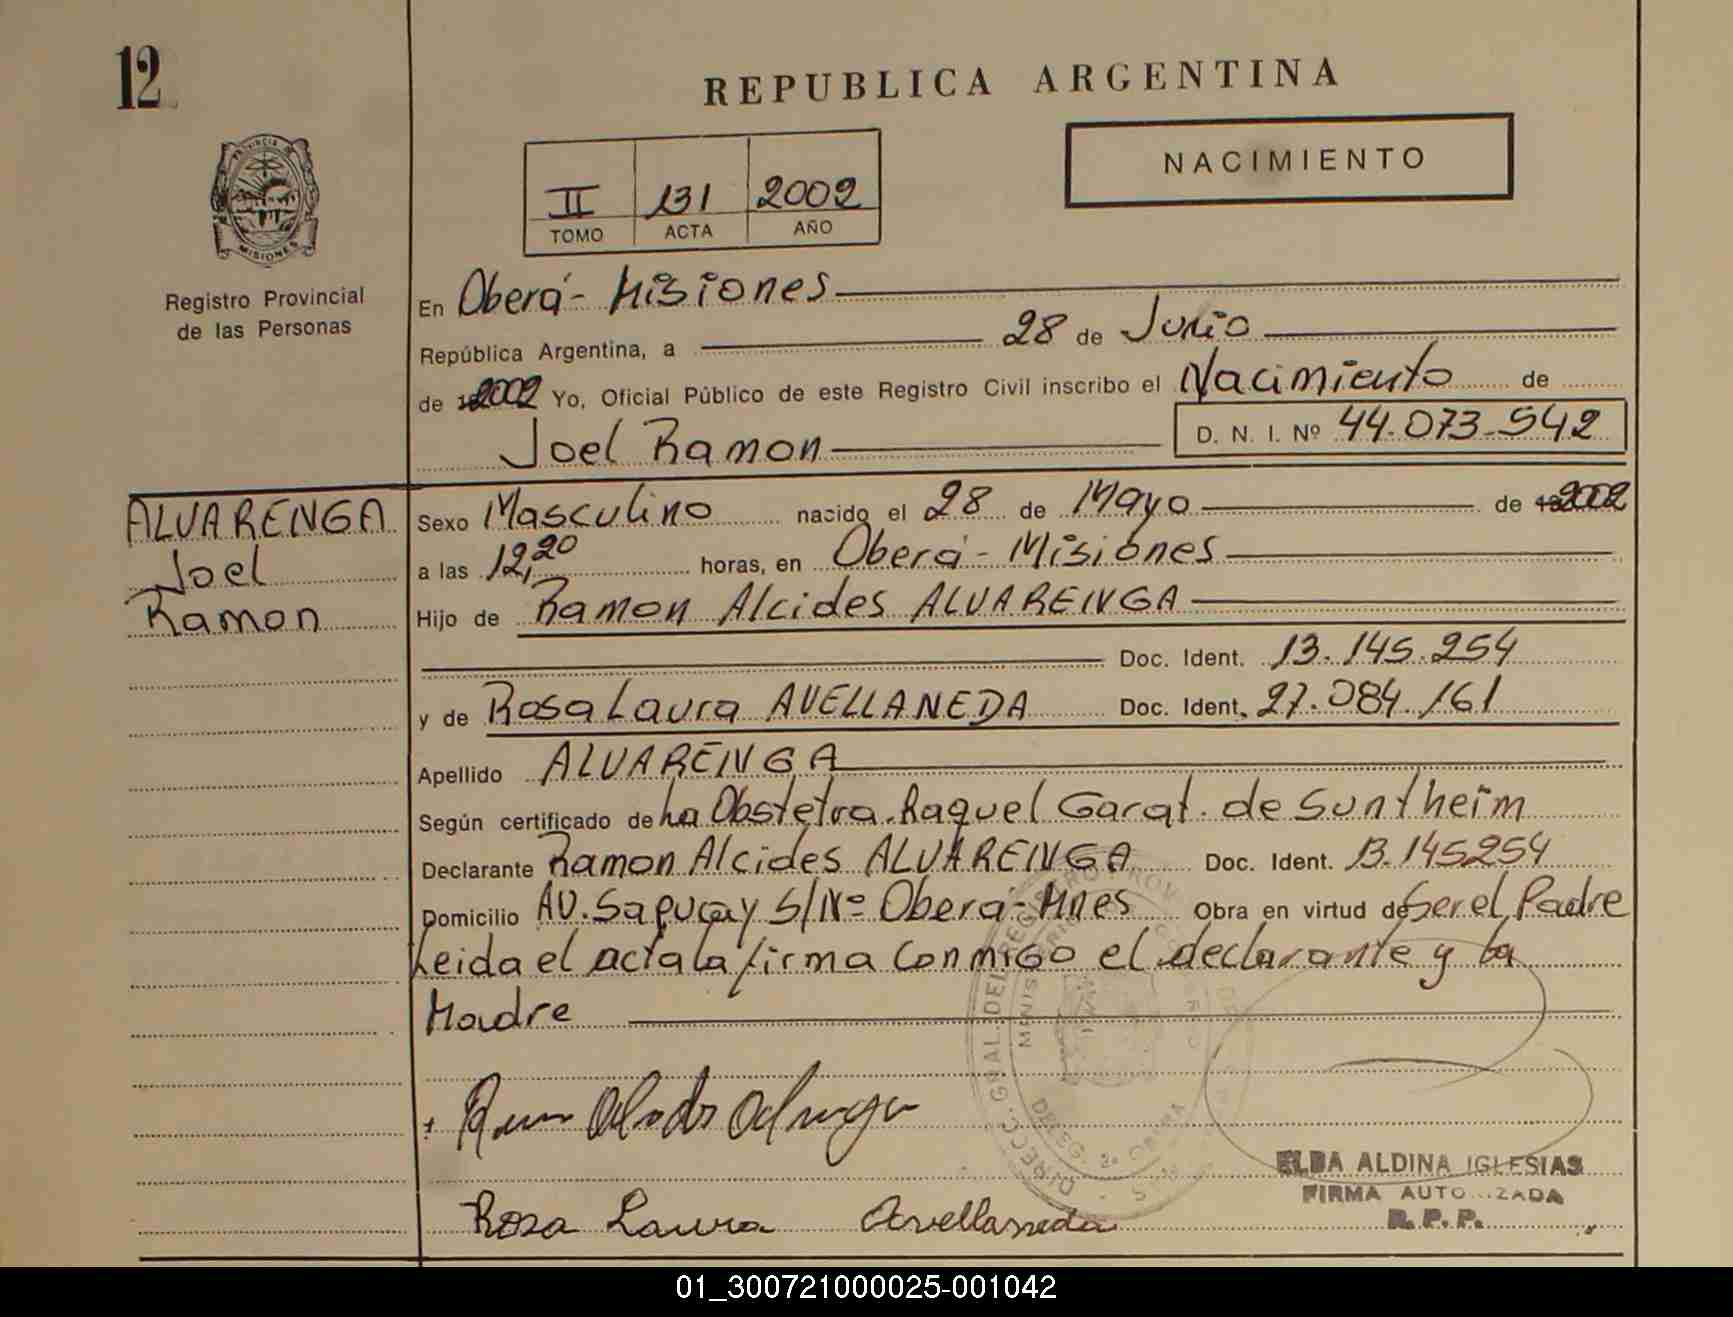 12
REPUBLICA ARGENTINA
NACIMIENTO
II 131 2002
TOMO ACTA AÑO
PROVINCIA DE
MISIONES
Registro Provincial
de las Personas
En Oberá - Misiones
República Argentina, a 28 de Junio
de 2002 Yo, Oficial Público de este Registro Civil inscribo el Nacimiento de
Joel Ramon D. N. I. Nº 44.073.542
ALVARENGA
Joel
Ramon
Sexo Masculino nacido el 28 de Mayo de 2002
a las 12,20 horas, en Oberá - Misiones
Hijo de Ramon Alcides ALVARENGA
Doc. Ident. 13.145.254
y de Rosa Laura AVELLANEDA Doc. Ident. 27.084.161
Apellido ALVARENGA
Según certificado de La Obstetra. Raquel Garat. de Suntheim
Declarante Ramon Alcides ALVARENGA Doc. Ident. 13.145254
Domicilio AV. Sapucay S/Nº Oberá - Mnes Obra en virtud de Ser el Padre
Leida el acta la firma conmigo el declarante y la
Madre
Rosa Laura Avellaneda
ELBA ALDINA IGLESIAS
FIRMA AUTO..ZADA
R.P.P.
01_300721000025-001042